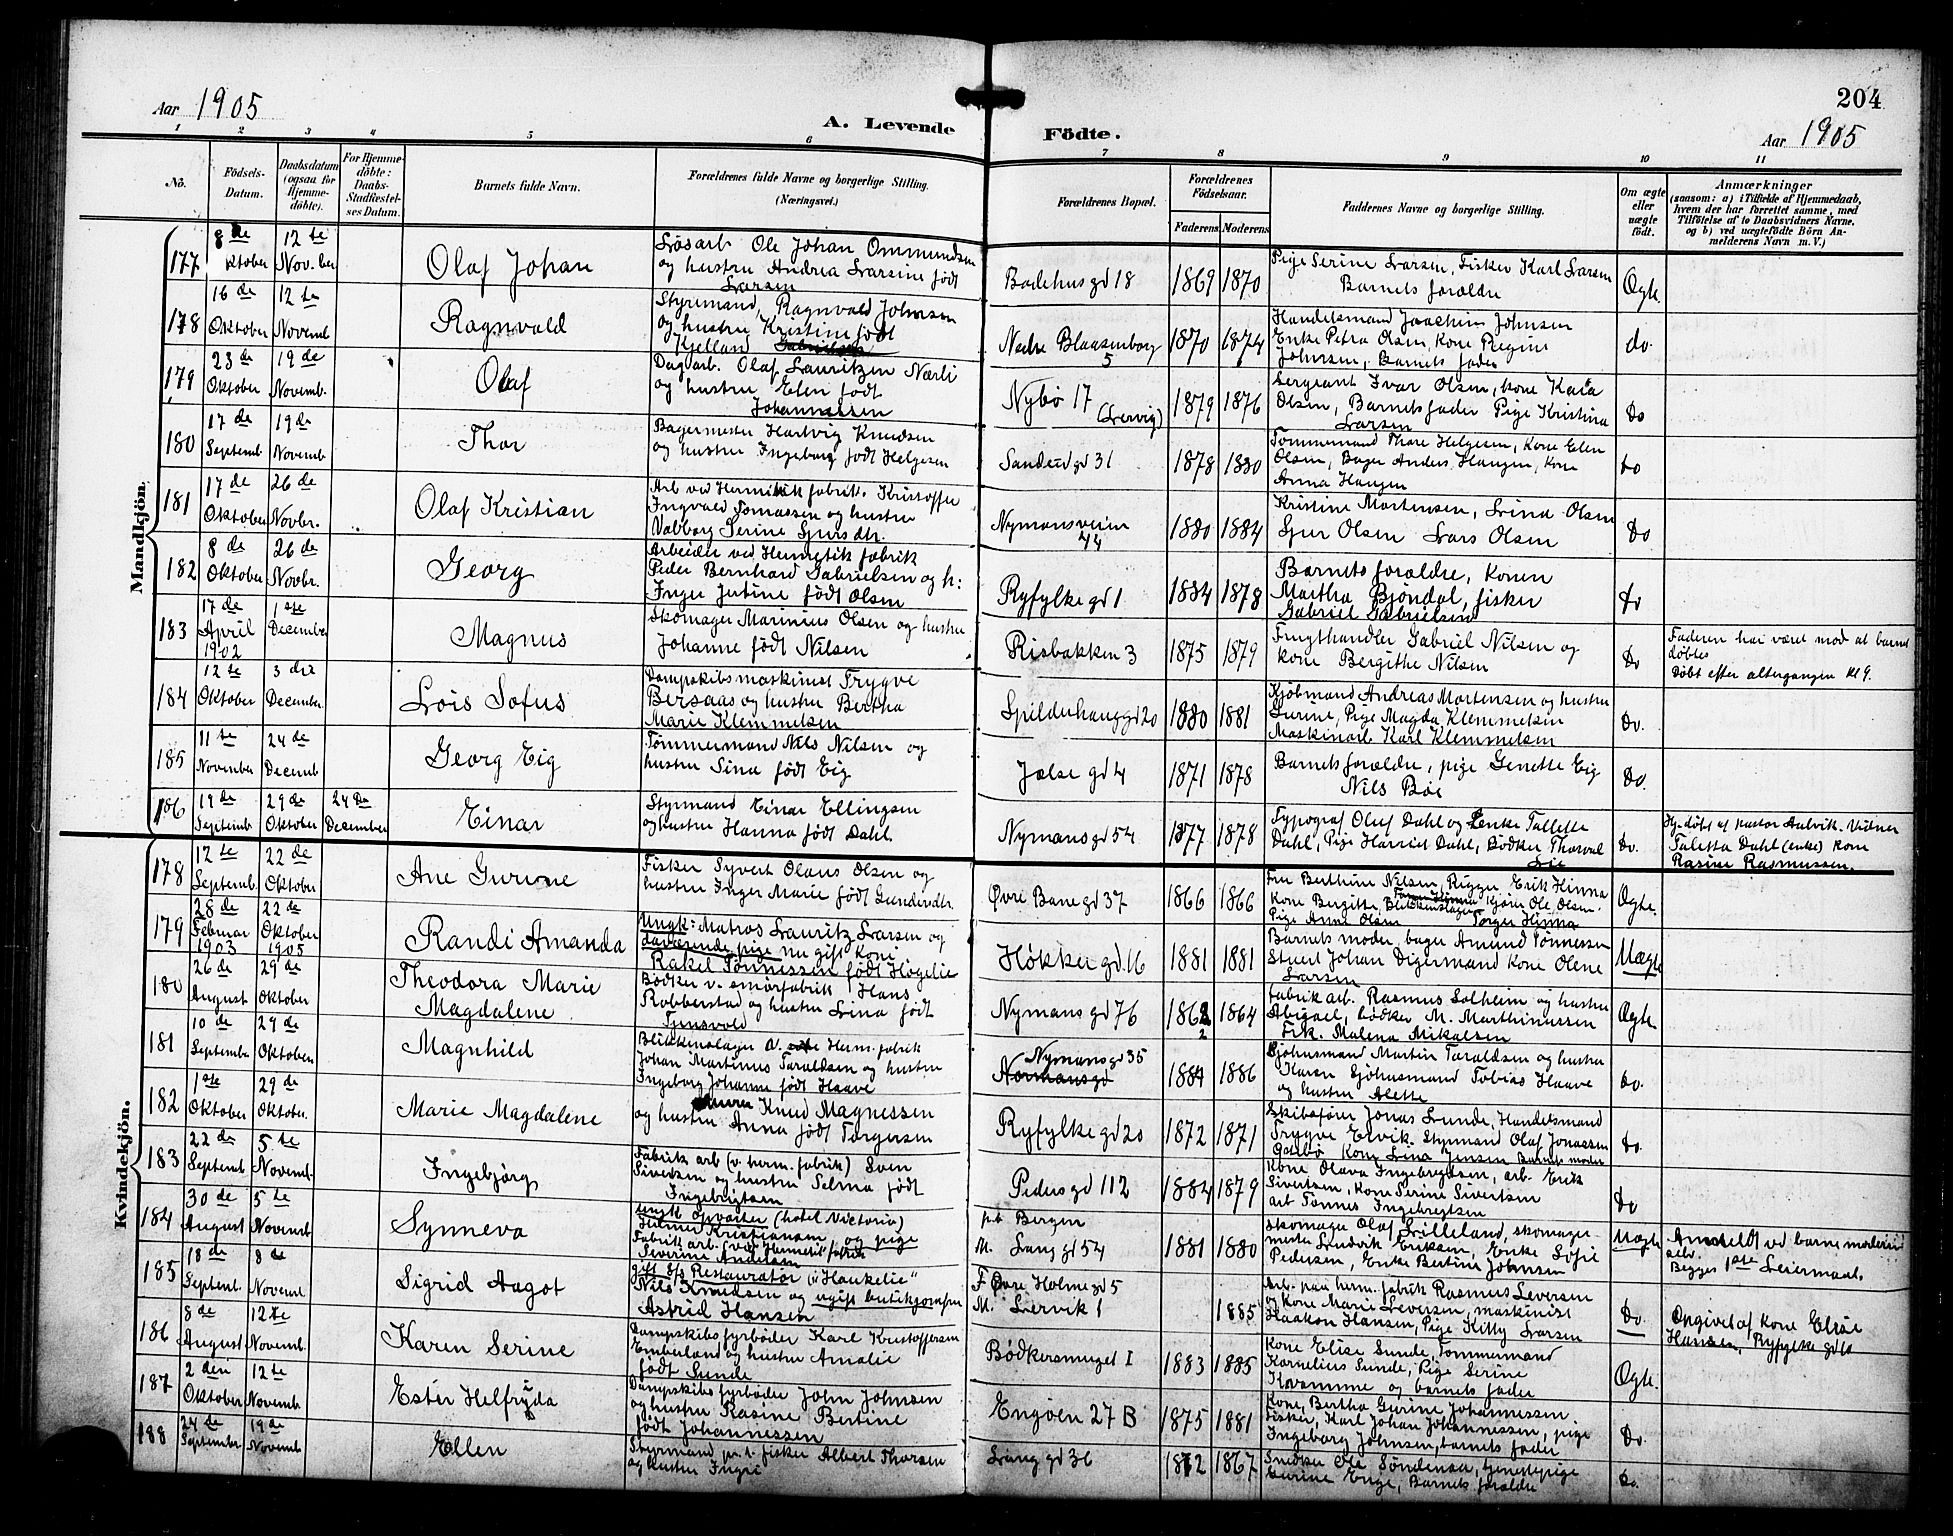 204
Aar 1905
A. Levende Födte.
Aar 1905
1 2 3 4 5 6 7 8 9 10 11
No.
Födsels-
Datum.
Daabsdatum
(ogsaa for
Hjemme-
döbte).
For Hjemme-
döbte:
Daabs-
Stadfæstel-
ses Datum.
Barnets fulde Navn.
Forældrenes fulde Navne og borgerlige Stilling.
(Næringsvei.)
Forældrenes Bopæl.
Forældrenes
Födselsaar.
Faderens Moderens
Faddernes Navne og borgerlige Stilling.
Om ægte
eller
uægte
födt.
Anmærkninger
(saasom: a) i Tilfælde af Hjemmedaab,
hvem der har forrettet samme, med
Tilföielse af to Daabsvidners Navne,
og b) ved uægtefödte Börn An-
melderens Navn m. V.)
Mandkjön.
177
8 de
ktober
12 te
Nov.ber
Olaf Johan
Løsarb Ole Johan Ommundsen
og hustru Andrea Larsine født
Larsen
Badehusgd 18
1869 1870
Pige Serine Larsen, Fisker Karl Larsen
Barnets forældre
Ægte
178
16 de
Oktober
12 te
Novemb
Ragnvald
Styrmand Ragnvald Johnsen
og hustru Kristine født
Kjelland
Nedre Blaasenborg
5
1870 1874
Handelsmand Joachim Johnsen
Enke Petra Olsen, Kone Regine
Johnsen, Barnets fader
do
179
23 de
Oktober
19 de
Novemb.
Olaf
Dagarb. Olaf Lauritzen Nærli
og hustru Elen født
Johannessen
Nybø 17
(Lervig)
1879 1876
Sergeant Ivar Olsen, kone Kaia
Olsen, Barnets fader Pige Kristina
Larsen
Do
180
17 de
Septemb
19 de
Novemb
Thor
Bagermester Hartvig Knudsen
og hustru Ingeborg født Helgesen
Sandeidgd 31
1878 1880
Tømmermand Thore Helgesen, Kone Elen
Olsen, Bager Anders Haugen, kone
Anna Haugen
Do
181
17 de
Oktober
26 de
Novbr.
Olaf Kristian
Arb ved Hermetik fabrik. Kristoffer
Ingvald Tomassen og hustru
Valborg Serine Sjursdtr.
Nymansveien
44
1880 1884
Kristine Mortensen, Lind Olsen
Sjur Olsen Lars Olsen
Do
182
8 de
Oktober
26 de
Novbr.
Georg
Arbeider ved Hermetik fabrik
Peder Bernhard Gabrielsen og h:
Inger Jutine født Olsen
Ryfylke gd 1
1884 1878
Barnets forældre, Konen
Martha Bjøndal, fisker
Gabriel Gabrielsen
Do
183
17 de
April
1902
1 ste
December
Magnus
Skomager Marinius Olsen og hustru
Johanne født Nilsen
Risbakken 3
1875 1879
Frugthandler Gabriel Nilsen og
kone Bergithe Nilsen
Do
Faderen har været mod at barnet
døbtes
Døbt efter altergangen kl 9.
184
12 te
Oktober
3 die
December
Lois Sofus
Dampskibsmaskinist Trygve
Bersaas og hustru Bertha
Marie Klemmetsen
Spilderhauggd 20
1880 1881
Kjøbmand Andreas Mortensen og hustru
Gurine, Pige Magda Klemmetsen
Maskinarb Karl Klemmetsen
Do.
185
11 te
November
24 de
Decemb
Georg Eig
Tømmermand Nils Nilsen og
hustru Sina født Eig
Jelse gd 4
1871 1878
Barnets forældre, pige Genette Eig
Nils Bøe
Do.
186
19 de
Septemb
29 de
Oktober
24 de
December
Einar
Styrmand Einar Ellingsen
og hustru Hanna født Dahl.
Nymansgd 54
1877 1878
Typograf Oluf Dahl og Enke Tallette
Dahl, Pige Harriet Dahl, Bødker Thorval
Lie
Do.
Hj. døbt af Pastor Aulvik. Vidner
Taletta Dahl (enke) kone
Rasine Rasmussen.
Kvindekjön.
178
12 te
Septemb.
22 de
Oktober
Ane Gurine
Fisker Syvert Olaus Olsen og
hustru Inger Marie født Gundersdtr.
Øvre Banegd 37
1866 1866
Fru Berthine Nilsen, Rigger Erik Hinna
Kone Bergitte, Blikkenslager Kjøre Ole Olsen
Pige Anne Olsen Torger Hinna
Ægte.
179
28 de
Februar
1903
22 de
Oktober
1905
Randi Amanda
Ungk: Matros Lauritz Larsen og
daværende pige nu gift kone
Rakel Tønnessen født Høgelie
Høkkergd 16
1881 1881
Barnets moder, bager Amund Tønnessen
Stuert Johan Digermand Kone Olene
Larsen
Uægte
180
26 de
August
29 de
Oktober
Theodora Marie
Magdalene
Bødker v. smørfabrik Hans
Robberstad og hustru Lina født
Tunsvold
Nymansgd 76
1862 1864
2
Fabrik arb. Rasmus Solheim og hustru
Abigael, bødker M. Marthinussen
Frk. Malena Mikalsen
Ægte
181
10 de
Septembe
29 de
Oktober
Magnhild
Blikkenslager v. Herm.fabrik
Johan Martinus Taraldsen og hustru
Ingeborg Johanne født Haave
Nymansgd 35
Normansgd
1884 1886
Sjøhusmand Martin Taraldsen og hustru
Karen Sjøhusmand Tobias Haave
og hustru Alette
do.
182
1 ste
Oktober
29 de
Oktober.
Marie Magdalene
Knud Magnessen
og hustru Anna født Torgersen
Ryfylkegd 20
1872 1871
Skibsfører Jonas Lunde, Handelsmand
Trygve Ervik. Styrmand Olaf Jonassen
Østebø Kone Lina Jensen Barnets moder
Do
183
22 de
Septemb
5 te
Novemb.
Ingebjørg
Fabrik arb (v. herm. fabrik) Sven
Sivertsen og hustru Selma født
Ingebrigtsen
Pedersgd 112
1884 1879
Kone Olava Ingebregtsen, arb. Erik
Sivertsen, Kone Serine Sivertsen
arb Tønnes Ingebregtsen
Do
184
30 de
August
5 te
Novemb
Synneva
ungk opvarter (hotel Victoria)
Hilmer Kristiansen, og pige
Fabrik arb. ved Hermetik fabrik
Severine Andersen
pt Bergen
M. Langgd 54
1881 1880
Skomager Olaf Lilleland, skomager
mester Lundvik Eriksen, Enke Sofie
Pedersen, Enke Bertine Johnsen
Uægte
Anmeldt ved barnemoderen
selv.
Begges 1ste Leiermaal.
185
18 de
Septemb.
8 de
Novemb
Sigrid Aagot
gift Restauratør (i "Haukelie"
Nils Knudsen og ugift butikjomfru
Astrid Hansen
F Øvre Holmegd 5
M. Lervik 1
1885
Arb. paa herm. fabrik Rasmus Seversen
og Kone Marie Seversen, maskinist
Haakon Hansen, Pige Kitty Larsen
Do.
Opgivet af kone Elise
Hansen, Ryfylke gd 10
186
8 de
August
12 te
Novemb.
Karen Serine
Dampskibsfyrbøder Karl Kristoffersen
Emberland og hustru Amalie
født Sunde
Bødkersmuget 1
1883 1885
Kone Elise Sunde, Tømmermand
Kornelius Sunde, Pige Serine
Kvamme og barnets fader
Ægte.
187
2 den
Oktober
12 te
Novemb
Ester Helfryda
Dampskibsfyrbøder John Johnsen
og hustru Rasine Bertine
født Johannessen
Engøen 27 B
1875 1881
Kone, Bertha Gurine Johannessen
fisker, Karl Johan Johannessen, pige
Ingeborg Johnsen, barnets fader
Do.
188
24 de
September
19 de
Novemb
Ellen
Styrmand p.t. fisker Albert Thorsen
og hustru Ingri
Langgd 36
1872 1867
Snedker Ole Søndenaa, tjenestepige
Gurine Enge, Barnets forældre
Do.